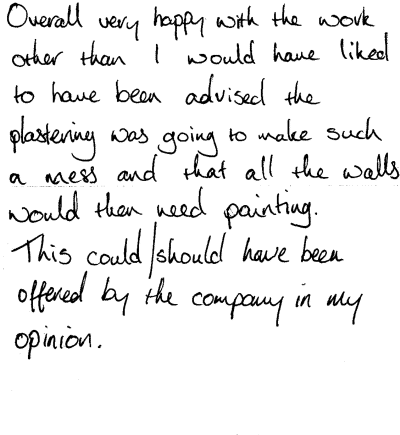 Overall very happy with the work
other than I would have liked
to have been advised the
plastering was going to make such
a mess and that all the walls
would then need painting.
This could/should have been
offered by the company in my
opinion.